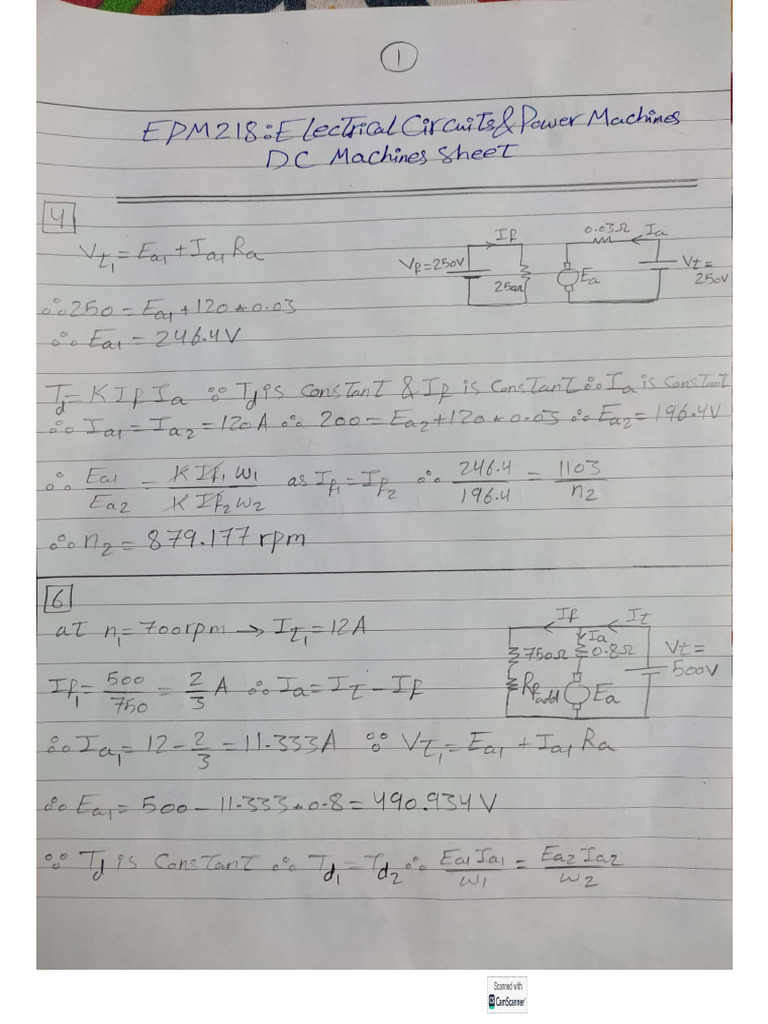 1
EPM218: Electrical Circuits & Power Machines
DC Machines Sheet
4
Vt1 = Ea1 + Ia1 Ra
If
0.03Ω
Ia
Vf=250V
250Ω
Ea
Vt=
250V
∴ 250 = Ea1 + 120 * 0.03
∴ Ea1 = 246.4V
Td = K If Ia ∵ Td is constant & If is constant ∴ Ia is constant
∴ Ia1 = Ia2 = 120A ∴ 200 = Ea2 + 120 * 0.03 ∴ Ea2 = 196.4V
∴ Ea1/Ea2 = K If1 ω1 / K If2 ω2 as If1 = If2 ∴ 246.4/196.4 = 1103/n2
∴ n2 = 879.177 rpm
6
at n1 = 700rpm → It1 = 12A
If
It
Ia
750Ω
0.8Ω
Vt=
500V
Rf add
Ea
If1 = 500/750 = 2/3 A ∴ Ia = It - If
∴ Ia1 = 12 - 2/3 = 11.333A ∵ Vt1 = Ea1 + Ia1 Ra
∴ Ea1 = 500 - 11.333 * 0.8 = 490.934 V
∵ Td is constant ∴ Td1 = Td2 ∴ Ea1 Ia1/ω1 = Ea2 Ia2/ω2
Scanned with
CamScanner